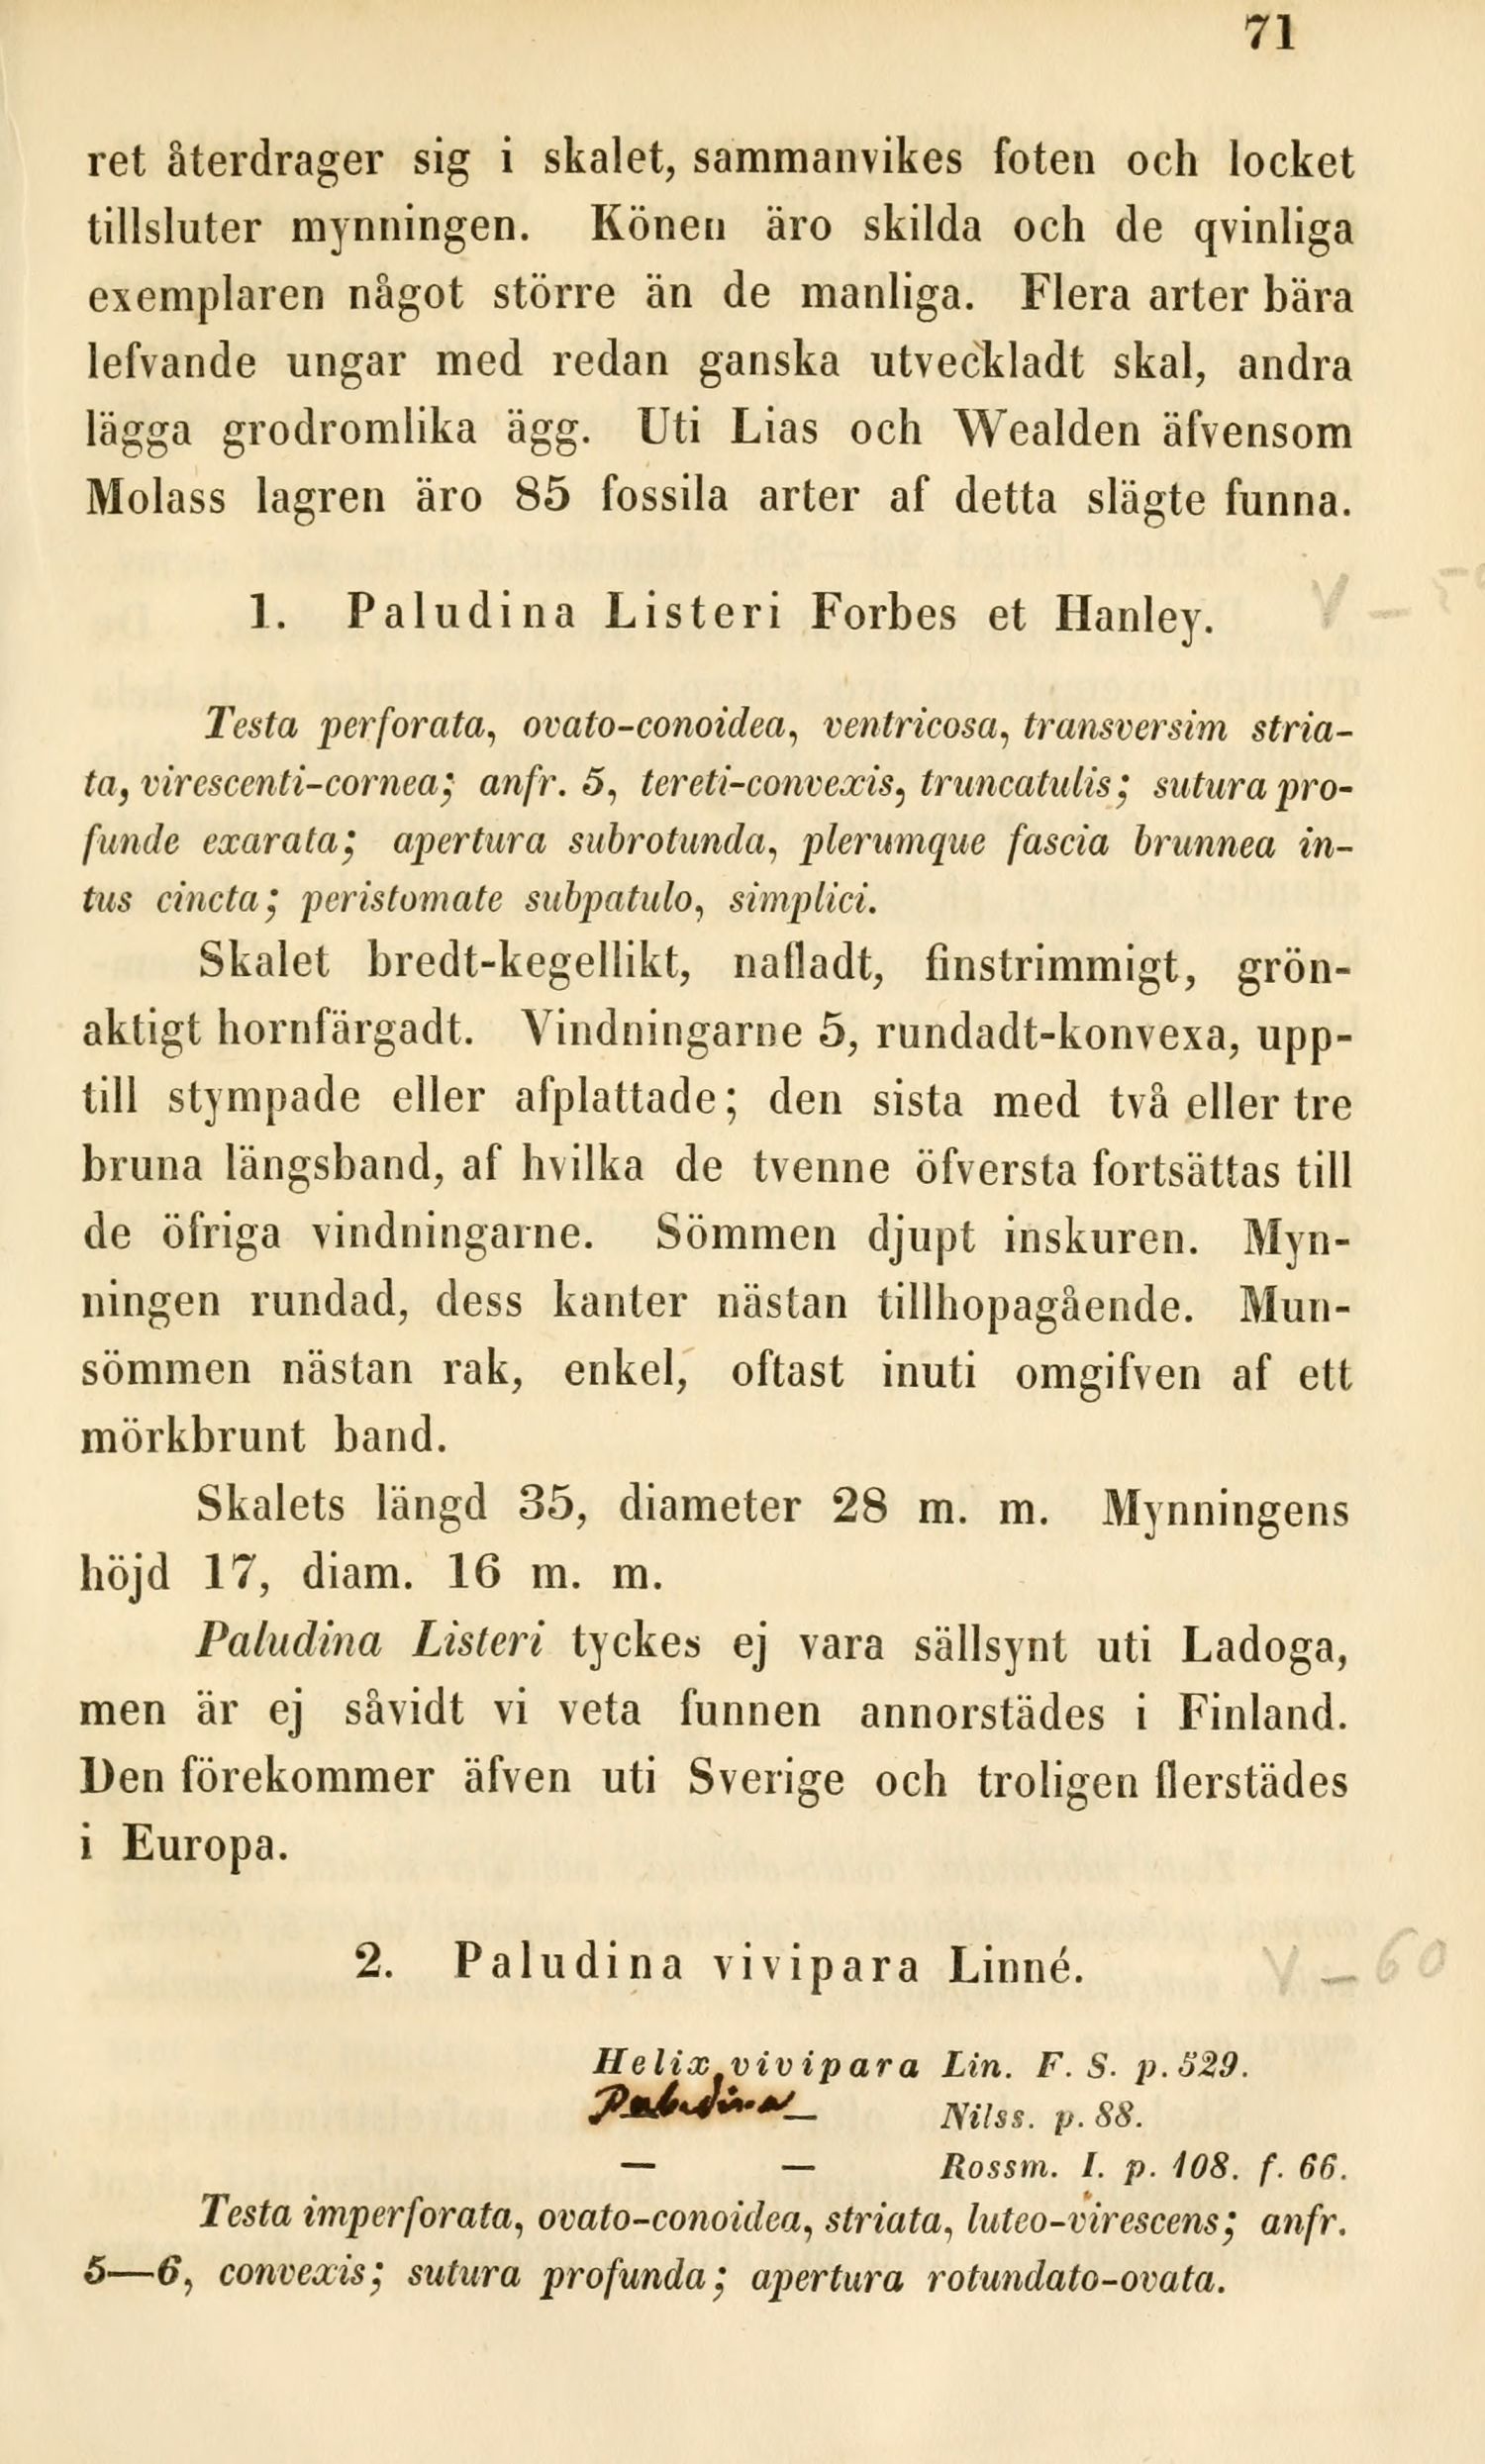 71
ret återdrager sig i skalet, sammanvikes foten och locket
tillsluter mynningen. Könen äro skilda och de qvinliga
exemplaren något större än de manliga. Flera arter bära
lefvande ungar med redan ganska utveckladt skal, andra
lägga grodromlika ägg. Uti Lias och Wealden äfvensom
Molass lagren äro 85 fossila arter af detta slägte funna.
1. Paludina Listeri Forbes et Hanley.
V –
Testa perforata, ovato-conoidea, ventricosa, transversim stria-
ta, virescenti-cornea; anfr. 5, tereti-convexis, truncatulis; sutura pro-
funde exarata; apertura subrotunda, plerumque fascia brunnea in-
tus cincta; peristomate subpatulo, simplici.
Skalet bredt-kegellikt, nafladt, finstrimmigt, grön-
aktigt hornfärgadt. Vindningarne 5, rundadt-konvexa, upp-
till stympade eller afplattade; den sista med två eller tre
bruna längsband, af hvilka de tvenne öfversta fortsättas till
de öfriga vindningarne. Sömmen djupt inskuren. Myn-
ningen rundad, dess kanter nästan tillhopagående. Mun-
sömmen nästan rak, enkel, oftast inuti omgifven af ett
mörkbrunt band.
Skalets längd 35, diameter 28 m. m. Mynningens
höjd 17, diam. 16 m. m.
Paludina Listeri tyckes ej vara sällsynt uti Ladoga,
men är ej såvidt vi veta funnen annorstädes i Finland.
Den förekommer äfven uti Sverige och troligen flerstädes
i Europa.
2. Paludina vivipara Linné.
V – 60
Helix vivipara Lin. F. S. p. 529.
Paludina — Nilss. p. 88.
— — Rossm. I. p. 108. f. 66.
Testa imperforata, ovato-conoidea, striata, luteo-virescens; anfr.
5—6, convexis; sutura profunda; apertura rotundato-ovata.